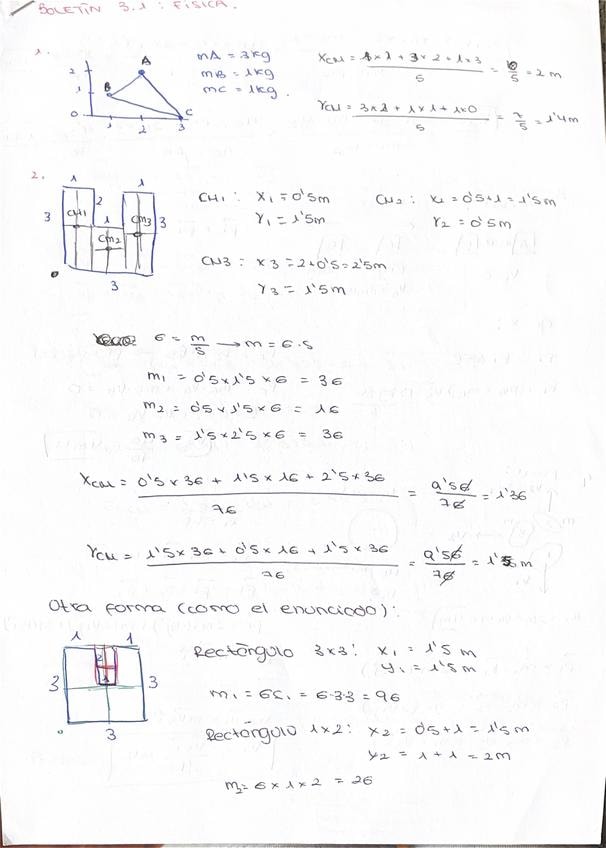 BOLETÍN 3.1 : FÍSICA.
1.
mA = 3kg
mB = 1kg
mC = 1kg.
2
1
0
A
B
C
1 2 3
XCM = 1×1 + 3×2 + 1×3 / 5 = /5 = 2 m
YCM = 3×2 + 1×1 + 1×0 / 5 = 7/5 = 1'4m
2.
1 1
3 2 1 3
CM1 CM2 CM3
3
CM1 : X1 = 0'5m
Y1 = 1'5m
CM2 : X2 = 0'5+1 = 1'5m
Y2 = 0'5m
CM3 : X3 = 2+0'5 = 2'5m
Y3 = 1'5m
σ = m/S → m = σ·S
m1 = 0'5×1'5×σ = 3σ
m2 = 0'5×1'5×σ = 1σ
m3 = 1'5×2'5×σ = 3σ
XCM = 0'5×3σ + 1'5×1σ + 2'5×3σ / 7σ = 9'5σ/7σ = 1'36
YCM = 1'5×3σ + 0'5×1σ + 1'5×3σ / 7σ = 9'5σ/7σ = m
Otra forma (como el enunciado):
1 1
3 2 1 3
3
Rectángulo 3×3: X1 = 1'5 m
Y1 = 1'5 m
m1 = σS1 = σ·3·3 = 9σ
Rectángulo 1×2: X2 = 0'5+1 = 1'5m
Y2 = 1+1 = 2m
m2 = σ×1×2 = 2σ